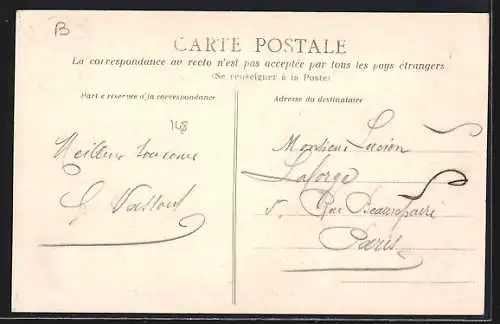 B
CARTE POSTALE
La correspondance au recto n'est pas acceptée par tous les pays étrangers
(Se renseigner à la Poste)
Partie réservée à la correspondance
Adresse du destinataire
148
Meilleur
G. Vassout
Monsieur Lucien
Laforge
5, Rue Beaurepaire
Paris